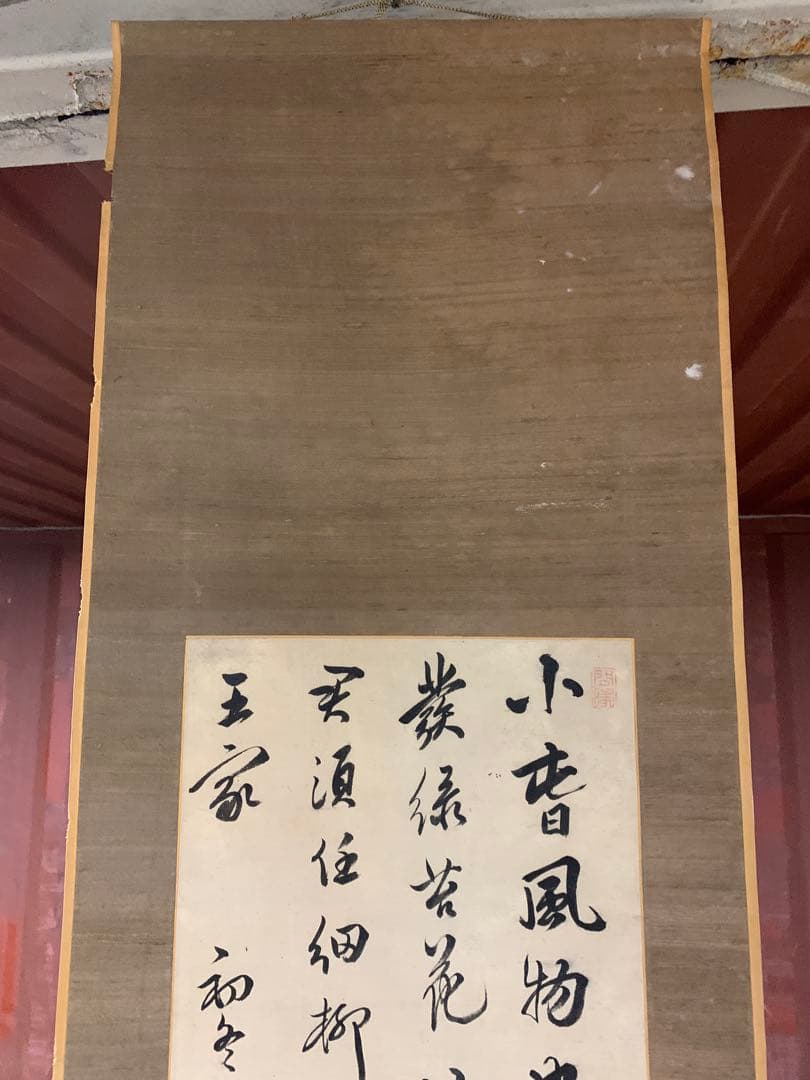 小旾風物
發綠苔花
須任細柳
王家 初冬